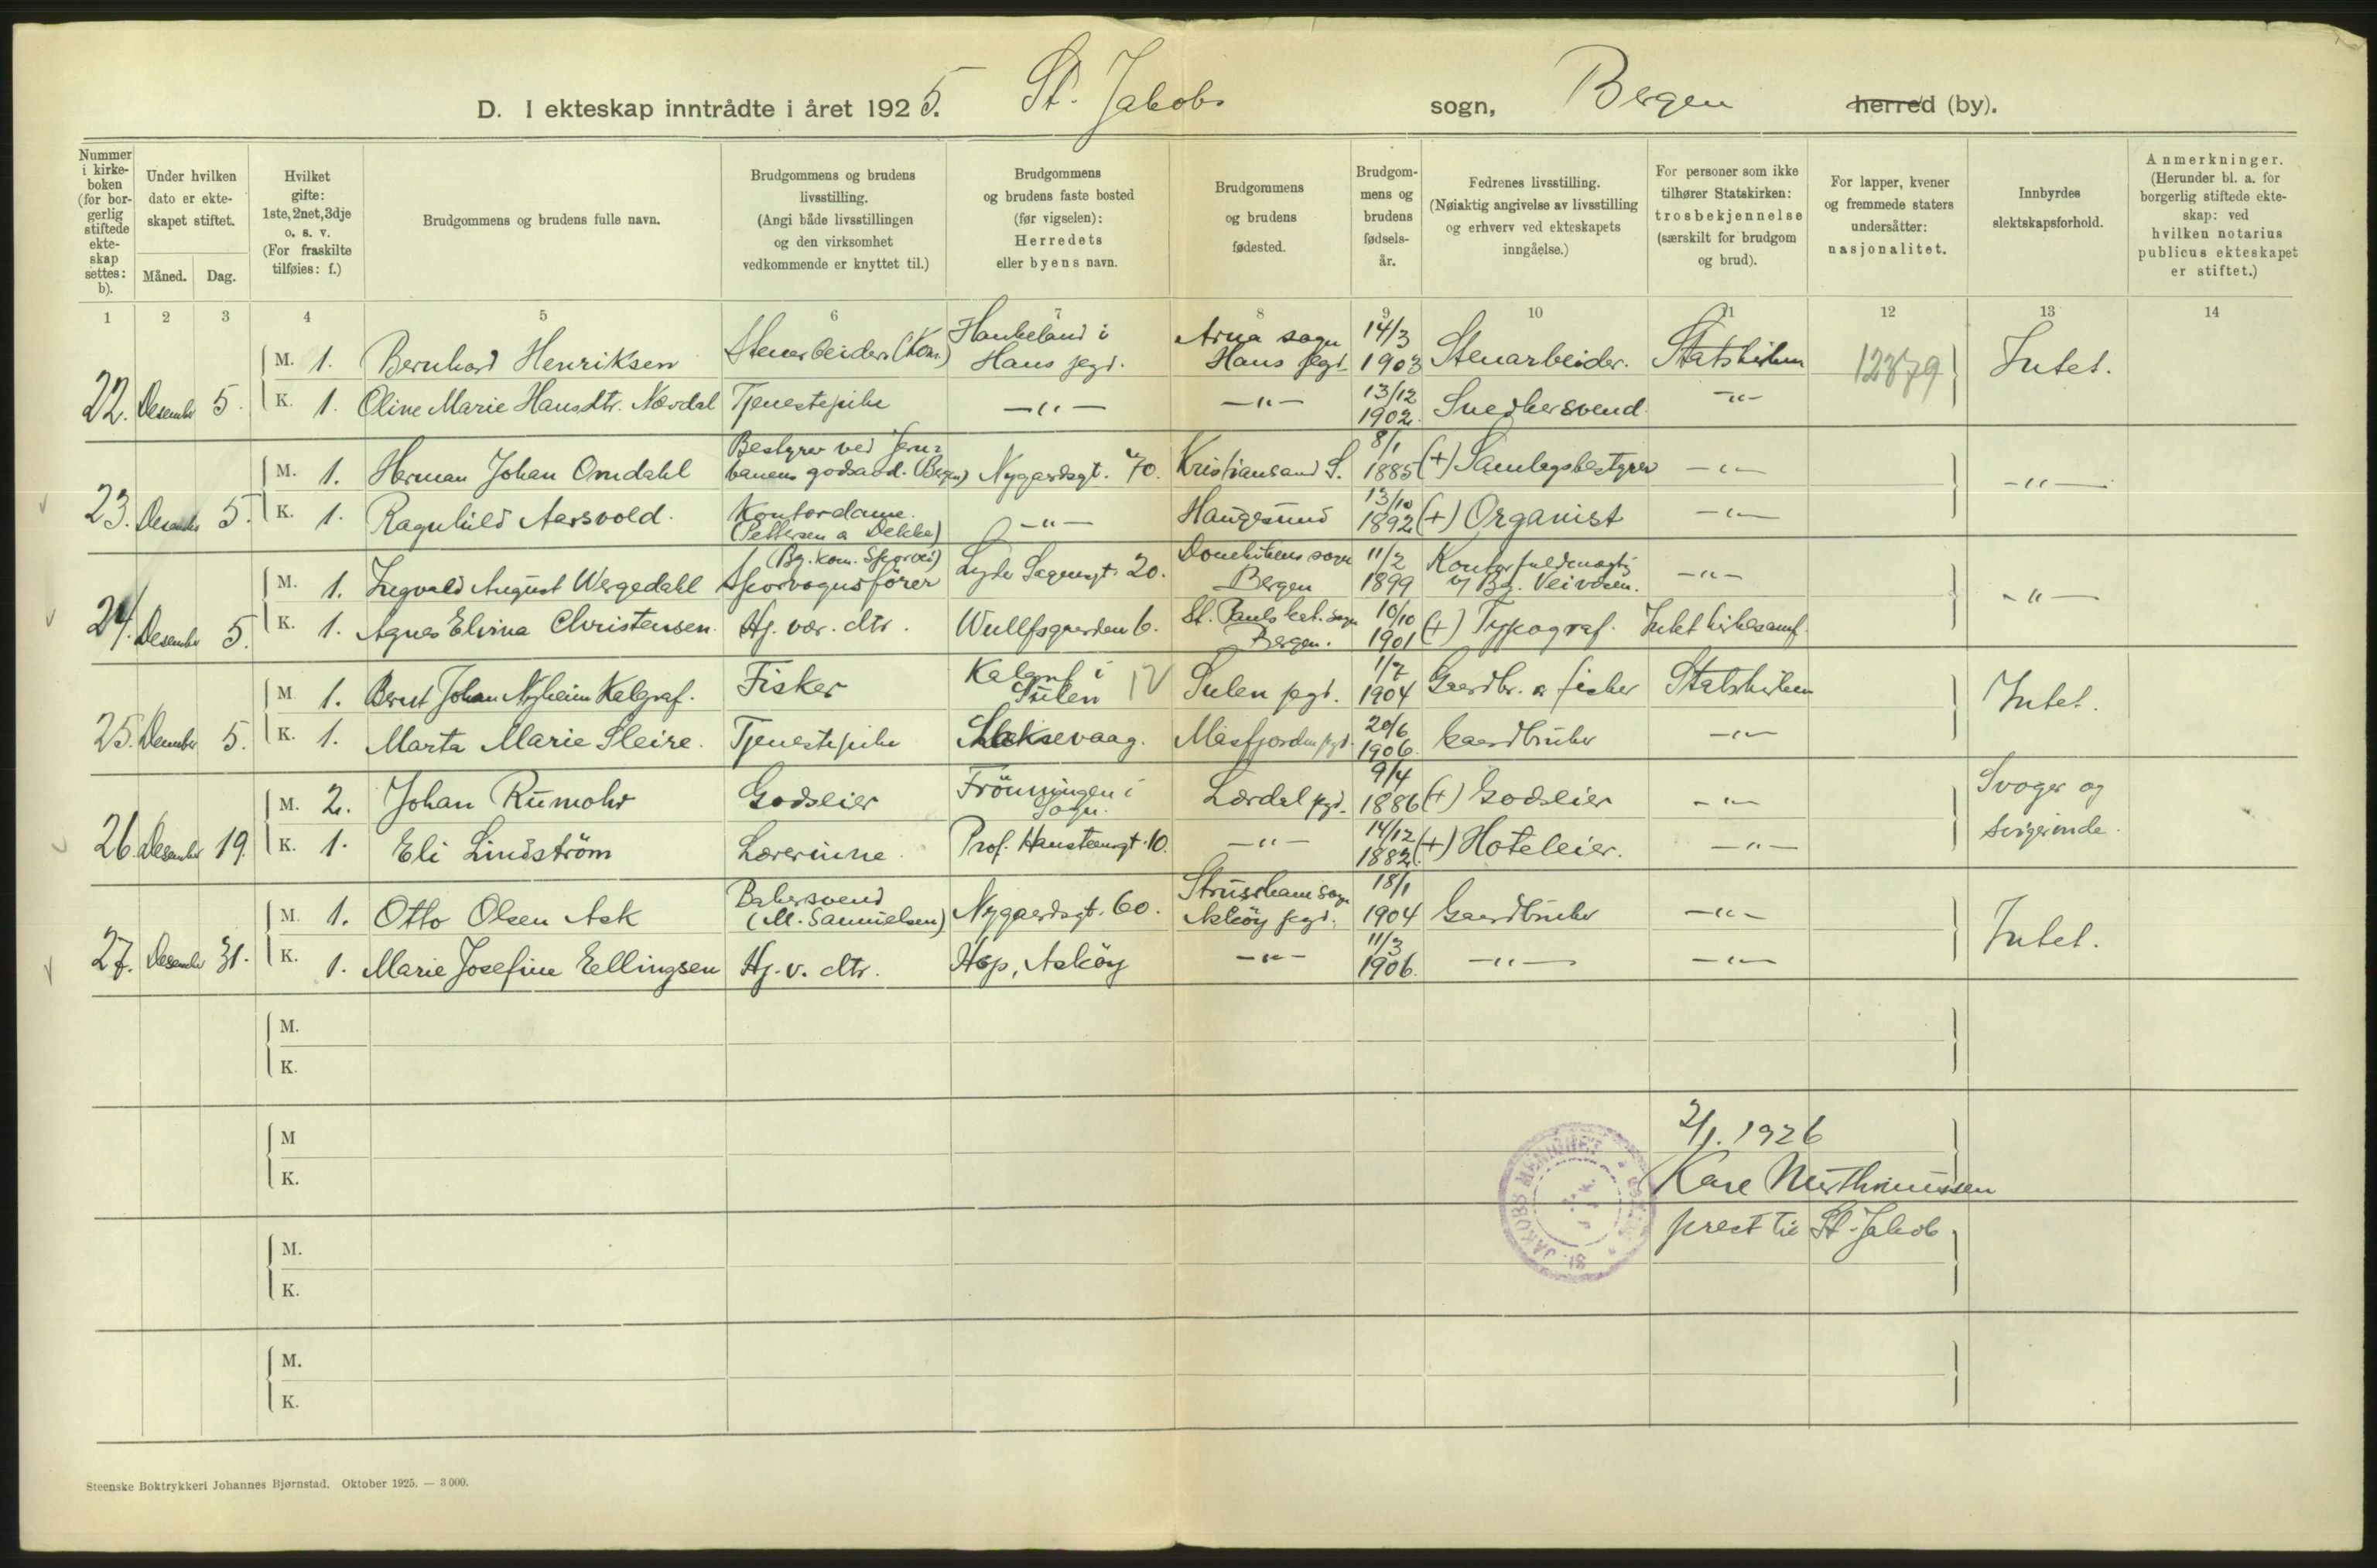 D. I ekteskap inntrådte i året 1925. St. Jakobs sogn, Bergen herred (by).
Nummer i kirkeboken (for borgerlig stiftede ekteskap settes: b).
Under hvilken dato er ekteskapet stiftet.
Måned. Dag.
Hvilket gifte: 1ste, 2net, 3dje o. s. v. (For fraskilte tilføies: f.)
Brudgommens og brudens fulle navn.
Brudgommens og brudens livsstilling. (Angi både livsstillingen og den virksomhet vedkommende er knyttet til.)
Brudgommens og brudens faste bosted (før vigselen): Herredets eller byens navn.
Brudgommens og brudens fødested.
Brudgommens og brudens fødselsår.
Fedrenes livsstilling. (Nøiaktig angivelse av livsstilling og erhverv ved ekteskapets inngåelse.)
For personer som ikke tilhører Statskirken: trosbekjennelse (særskilt for brudgom og brud).
For lapper, kvener og fremmede staters undersåtter: nasjonalitet.
Innbyrdes slektskapsforhold.
Anmerkninger. (Herunder bl. a. for borgerlig stiftede ekteskap: ved hvilken notarius publicus ekteskapet er stiftet.)
1 2 3 4 5 6 7 8 9 10 11 12 13 14
22. Desember 5. M. 1. Bernhard Henriksen Stenarbeider (Kom) Haukeland i Haus pgd. Arna sogn Haus pgd. 14/3 1903 Stenarbeider. Statskirken 12379 Intet.
K. 1. Oline Marie Hansdtr. Nævdal Tjenestepike —"— —"— 13/12 1902. Snedkersvend. —"—
23. Desember 5. M. 1. Herman Johan Omdahl Bestyrer ved Jernbanens godsavd. (Bergen) Nygaardsgt. 70. Kristiansand S. 8/1 1885 (+) Samlagsbestyrer —"— —"—
K. 1. Ragnhild Aarsvold. Kontordame. (Pettersen & Dekke) —"— Haugesund 13/10 1892 (+) Organist —"—
24. Desember 5. M. 1. Ingvald August Wergedahl (Bg. Kom. Sporvei) Sporvognsfører Lyder Sagensgt. 20. Domkirkens sogn Bergen 11/2 1899 Kontorfuldmægtig v/ Bg. Veivæsen. —"— —"—
K. 1. Agnes Elvina Christensen. Hj. vær. dtr. Wullfsgaarden 6. St. Pauls kat. sogn Bergen. 10/10 1901 (+) Typograf. Intet kirkesamf.
25. Desember 5. M 1. Bernt Johan Nyheim Kalgraf. Fisker Kalgraf i Sulen IV Sulen pgd. 1/7 1904 Gaardbr. & fisker Statskirken Intet.
K. 1. Marta Marie Sleire. Tjenestepike Laksevaag. Masfjorden pgd. 20/6 1906. Gaardbruker —"—
26. Desember 19. M. 2. Johan Rumohr Godseier Frönningen i Sogn. Lærdal pgd. 9/4 1886 (+) Godseier —"— Svoger og svigerinde.
K. 1. Eli Lindström Lærerinne. Prof. Hansteensgt. 10. —"— 14/12 1882. (+) Hoteleier. —"—
27. Desember 31. M. 1. Otto Olsen Ask Bakersvend (M. Samuelsen) Nygaardsgt. 60. Strusshamn sogn Askøy pgd. 18/1 1904 Gaardbruker —"— Intet.
K. 1. Marie Josefine Eellingsen Hj. v. dtr. Hop, Askøy —"— 11/3 1906. —"— —"—
M.
K.
M
K.
M.
K.
M.
K.
2/1. 1926
prest til St. Jakob
St. JAKOBS MENIGHET
Steenske Boktrykkeri Johannes Bjørnstad. Oktober 1925. — 3 000.